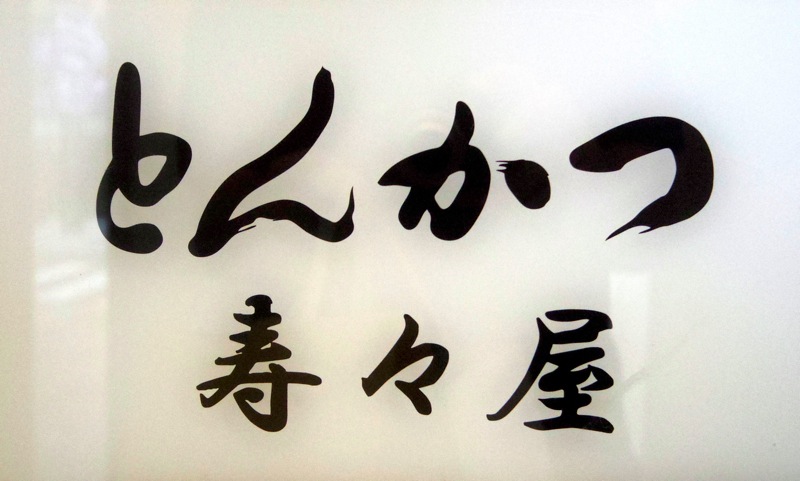 とんかつ
寿々屋